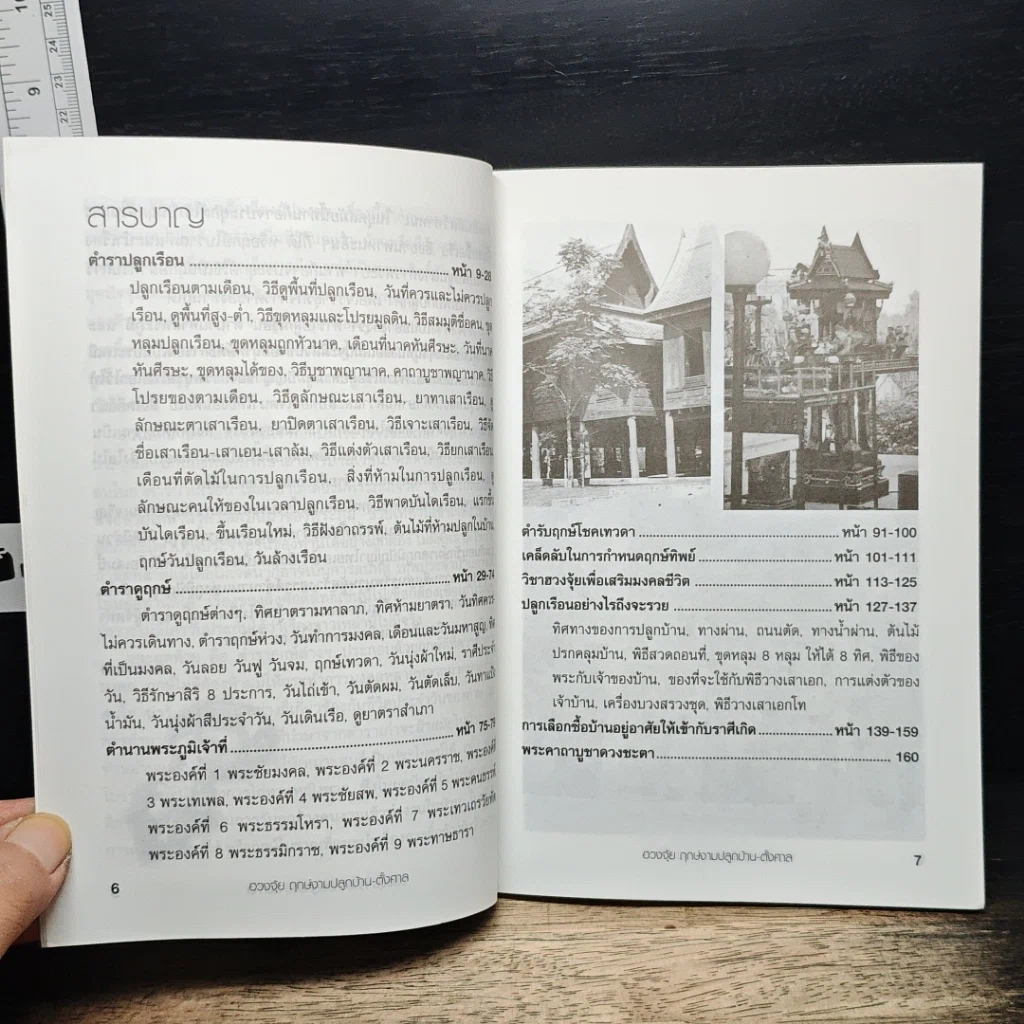 สารบาญ
ตำราปลูกเรือน ........ หน้า 9-28
ปลูกเรือนตามเดือน, วิธีดูพื้นที่ปลูกเรือน, วันที่ควรและไม่ควรปลูก
เรือน, ดูพื้นที่สูง-ต่ำ, วิธีขุดหลุมและโปรยมูลดิน, วิธีสมมุติชื่อคน, ขุด
หลุมปลูกเรือน, ขุดหลุมถูกหัวนาค, เดือนที่นาคหันศีรษะ, วันที่นาค
หันศีรษะ, ขุดหลุมได้ของ, วิธีบูชาพญานาค, คาถาบูชาพญานาค,
โปรยของตามเดือน, วิธีดูลักษณะเสาเรือน, ยาทาเสาเรือน,
ลักษณะตาเสาเรือน, ยาปิดตาเสาเรือน, วิธีเจาะเสาเรือน,
ชื่อเสาเรือน-เสาเอน-เสาล้ม, วิธีแต่งตัวเสาเรือน, วิธียกเสาเรือน
เดือนที่ตัดไม้ในการปลูกเรือน, สิ่งที่ห้ามในการปลูกเรือน,
ลักษณะคนให้ของในเวลาปลูกเรือน, วิธีพาดบันไดเรือน, แรกขึ้น
บันไดเรือน, ขึ้นเรือนใหม่, วิธีฝังอาถรรพ์, ต้นไม้ที่ห้ามปลูกในบ้าน
ฤกษ์วันปลูกเรือน, วันล้างเรือน
ตำราดูฤกษ์ ........ หน้า 29-74
ตำราดูฤกษ์ต่างๆ, ทิศยาตรามหาลาภ, ทิศห้ามยาตรา, วันทิศควร-
ไม่ควรเดินทาง, ตำราฤกษ์ห่วง, วันทำการมงคล, เดือนและวันมหาสูญ, ทิศ
ที่เป็นมงคล, วันลอย วันฟู วันจม, ฤกษ์เทวดา, วันนุ่งผ้าใหม่, ราศีประจำ
วัน, วิธีรักษาสิริ 8 ประการ, วันไถ่เข้า, วันตัดผม, วันตัดเล็บ, วันทาแป้ง
น้ำมัน, วันนุ่งผ้าสีประจำวัน, วันเดินเรือ, ดูยาตราสำเภา
ตำนานพระภูมิเจ้าที่ ........ หน้า 75-79
พระองค์ที่ 1 พระชัยมงคล, พระองค์ที่ 2 พระนครราช, พระองค์ที่
3 พระเทเพล, พระองค์ที่ 4 พระชัยสพ, พระองค์ที่ 5 พระคนธรรพ์
พระองค์ที่ 6 พระธรรมโหรา, พระองค์ที่ 7 พระเทวเถรวัยทัต
พระองค์ที่ 8 พระธรรมิกราช, พระองค์ที่ 9 พระทาษธารา
6 ฮวงจุ้ย ฤกษ์งามปลูกบ้าน-ตั้งศาล
ตำรับฤกษ์โชคเทวดา ........ หน้า 91-100
เคล็ดลับในการกำหนดฤกษ์ทิพย์ ........ หน้า 101-111
วิชาฮวงจุ้ยเพื่อเสริมมงคลชีวิต ........ หน้า 113-125
ปลูกเรือนอย่างไรถึงจะรวย ........ หน้า 127-137
ทิศทางของการปลูกบ้าน, ทางผ่าน, ถนนตัด, ทางน้ำผ่าน, ต้นไม้
ปรกคลุมบ้าน, พิธีสวดถอนที่, ขุดหลุม 8 หลุม ให้ได้ 8 ทิศ, พิธีของ
พระกับเจ้าของบ้าน, ของที่จะใช้กับพิธีวางเสาเอก, การแต่งตัวของ
เจ้าบ้าน, เครื่องบวงสรวงชุด, พิธีวางเสาเอกโท
การเลือกซื้อบ้านอยู่อาศัยให้เข้ากับราศีเกิด ........ หน้า 139-159
พระคาถาบูชาดวงชะตา ........ 160
ฮวงจุ้ย ฤกษ์งามปลูกบ้าน-ตั้งศาล 7